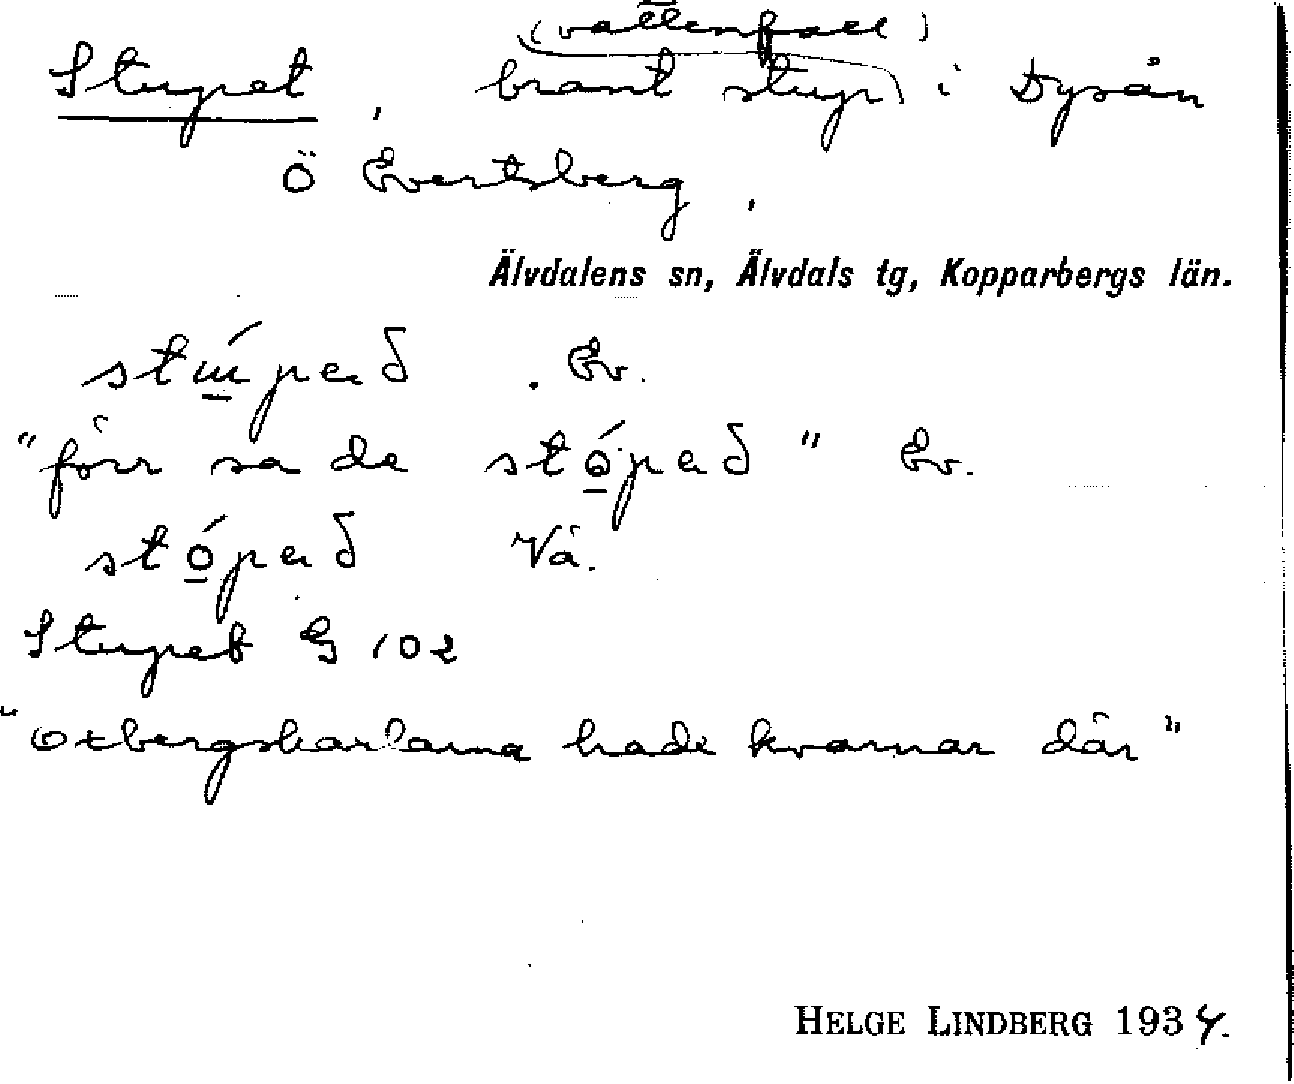 (vattenfall)
Stupet, brant stup i Dysån
Ö Evertsberg,
Älvdalens sn, Älvdals tg, Kopparbergs län.
Ev.
"förr sa de stópeð" Ev.
stópeð Vå.
Stupet G 102
"Oxbergskarlarna hade kvarnar där"
HELGE LINDBERG 1934.